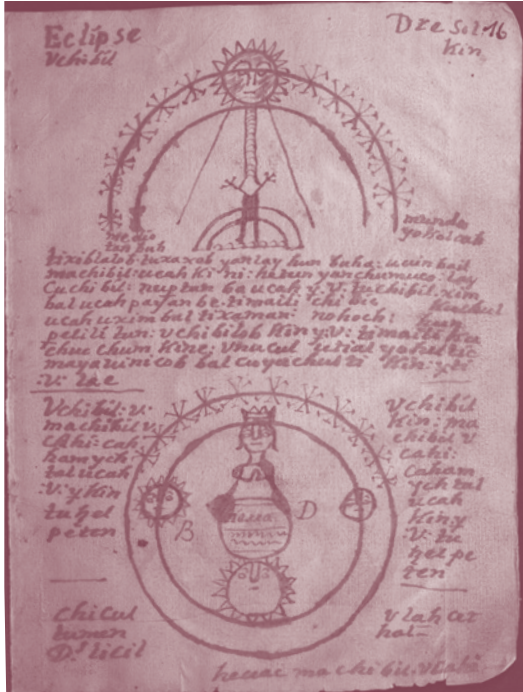 Eclipse
Vchibil
Dze Sol 16
Kin
medio
tan bak
mundo
yokol cab
tixiblalob: tuxaxob yanlay hun baha: ucuin bail
machibil: ucah Ki ni: hatun yanchumuco, lay
Cuchibil: nuptan ba ucah y. v. tuchibil: xim
bal ucah payan be: ti maili chi bic
ucah uximbal tixaman: nohochi
petili tun: v chibilob Kin y: v: ti maili Ku
chuc chum Kine: vnucul
mayavinicob bal cu yuchul ti Kin: y ti
:v: lae
Vchibil: v:
machibil v
cahi: cah
ham ych
tal ucah
:v: y Kin
tu hel
peten
Vchibil
Kin: ma
chibil v
cahi:
caham
ych tal
ucah
Kin y
:v: tu
hel pe
ten
B
D
chicul
tumen
Ds licil
v lah ca
hal
hecuac machibil: vlahi